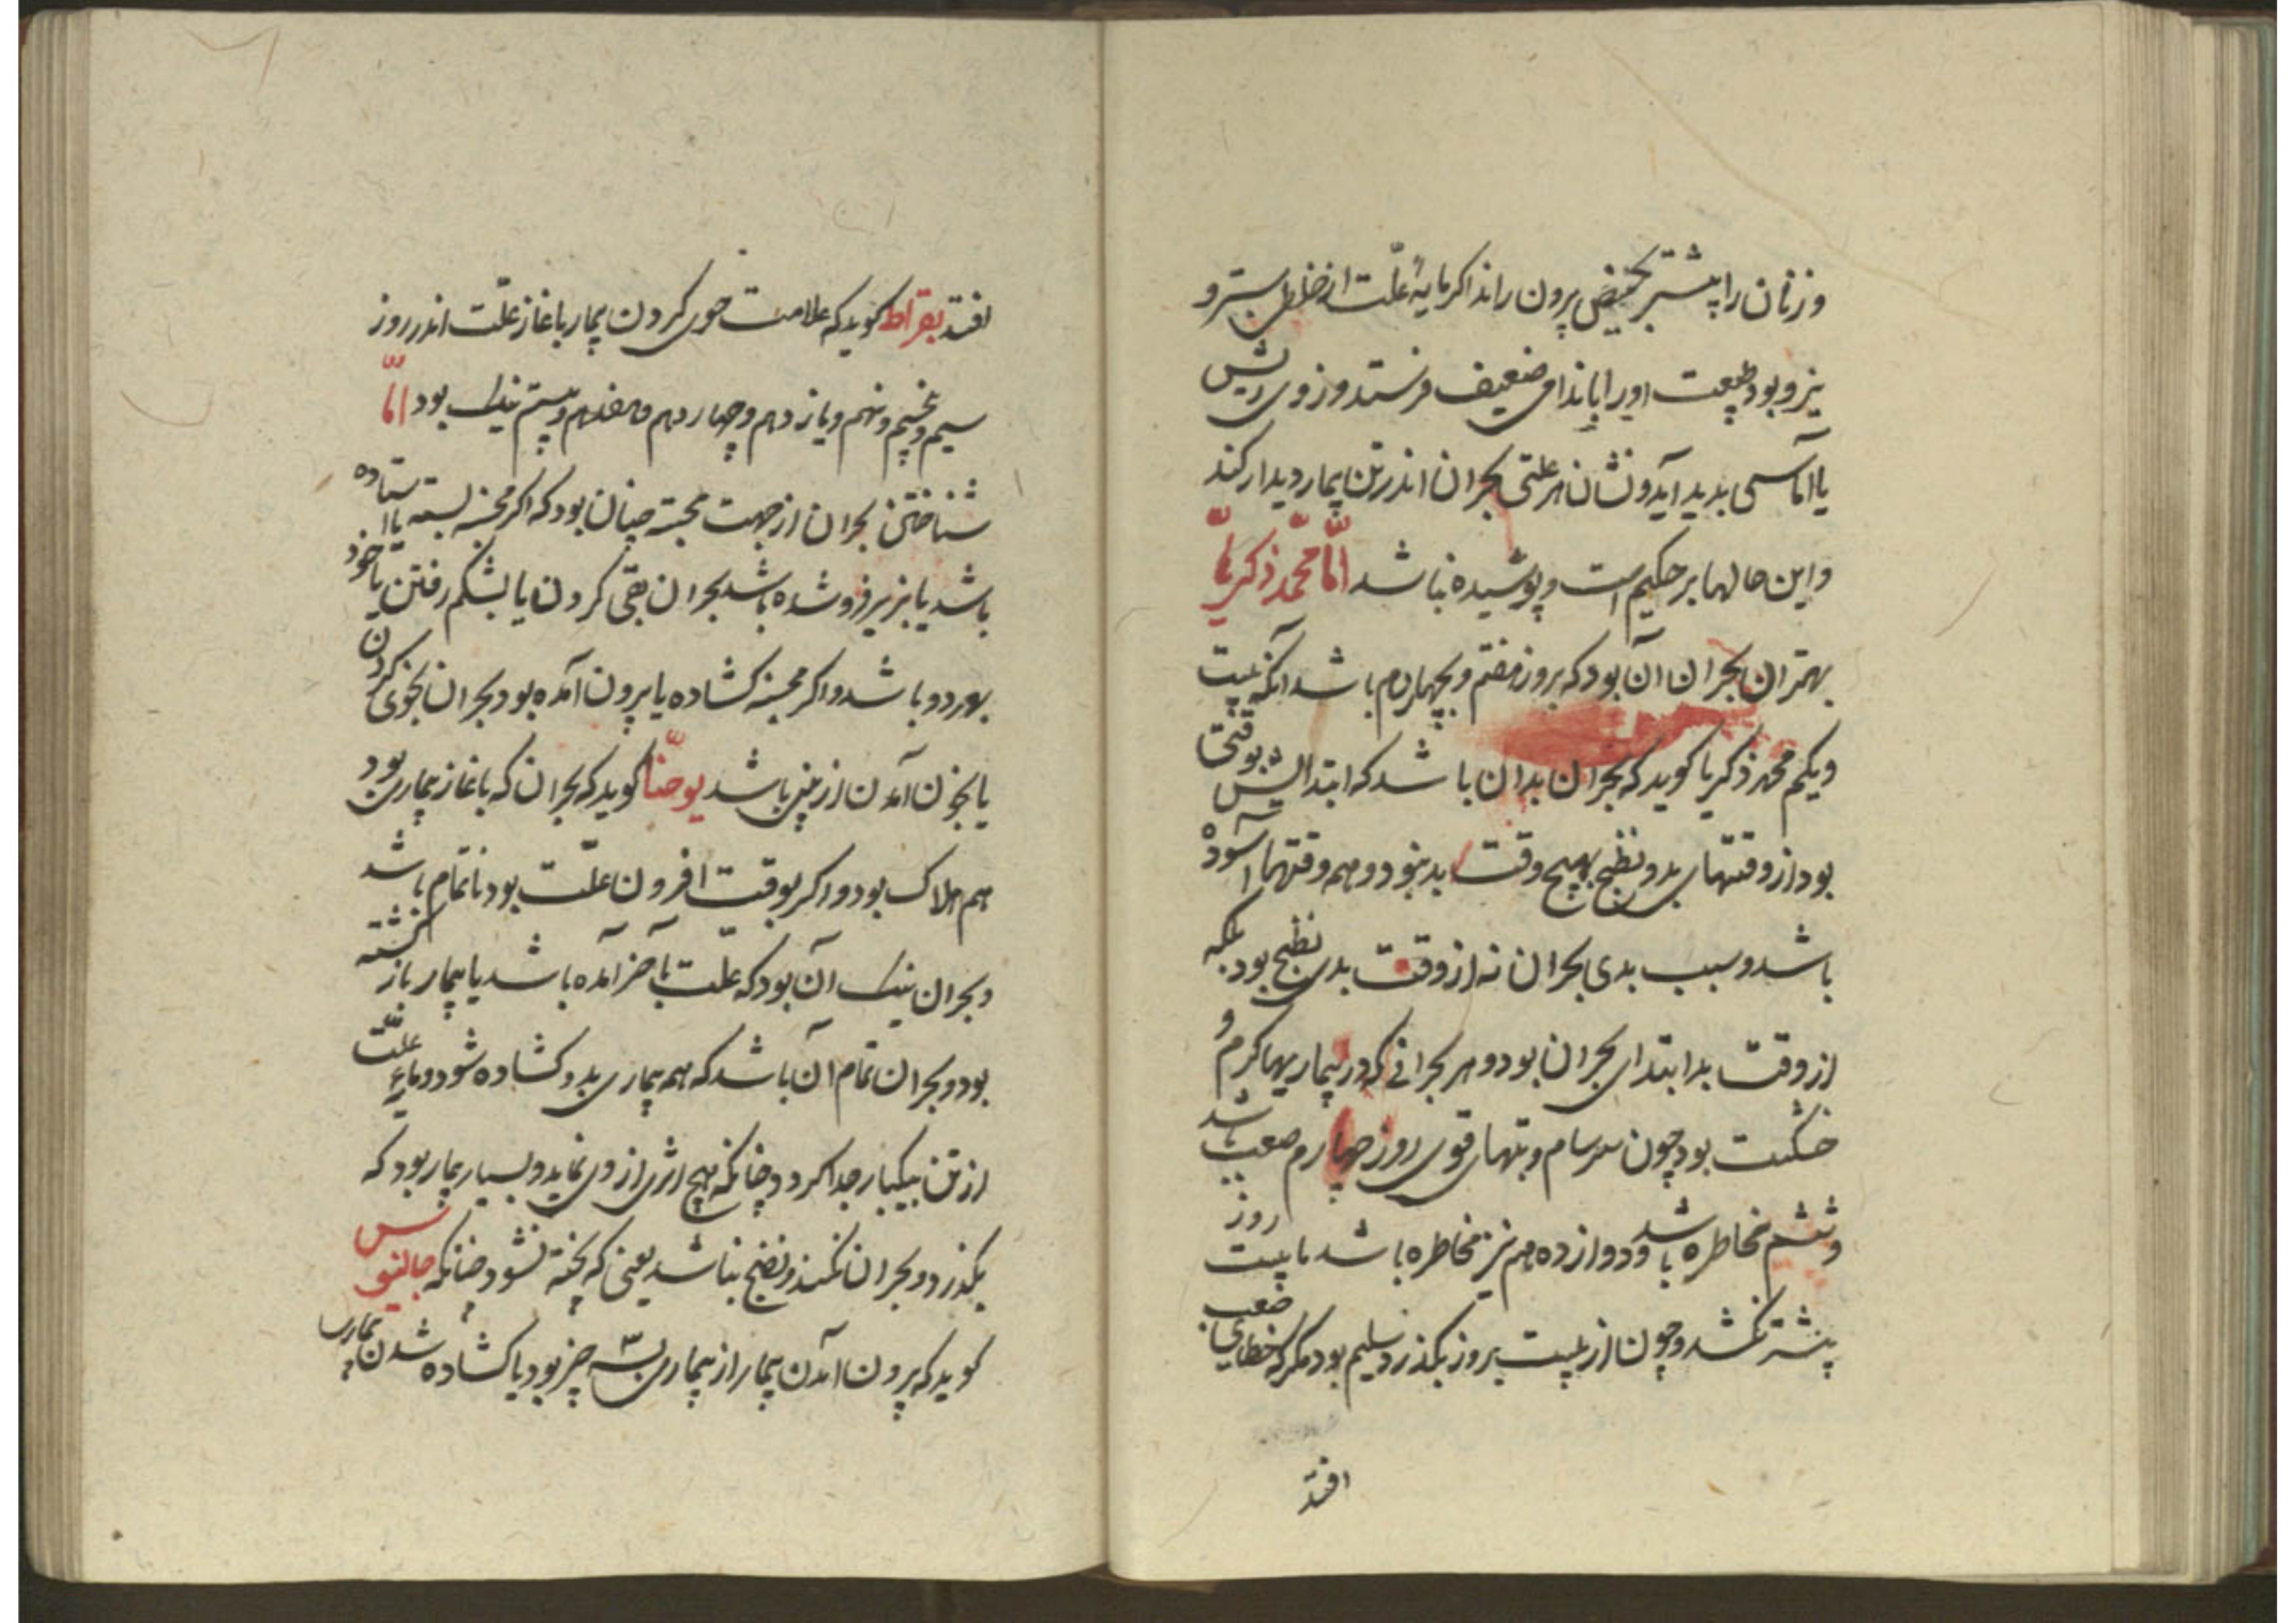 و زنان را پیشتر بحیض پرون راند اکر مایۀ علّت از خلطی ستبر و
نیرو بود طبیعت او را باندامی ضعیف فرستد و ز وی ریش
یا آماسی بدید آید و نشان هر علتی بحران اندر تن بیمار دیدار کند
و این حالها بر حکیم است و پوشیده نباشد امّا محمّد زکریّا
بهتر ان بحران آن بود که بروز هفتم و بچهاردم باشد آنکه بیست
ویکم محمد زکریا کوید که بحران بد ان باشد که ابتدایش بوقتی
بود از وقتهای بد و نضج بهیچ وقت بد نبود و همه وقتها آسوده
باشد و سبب بدی بحران نه از وقت بدی نضج بود بلکه
از وقت بد ابتدای بحران بود و هر بحرانی که در بیماریها کرم و
خشک بود چون سرسام و تبهای قوی روز چهارم صعب باشد
و ششم مخاطره باشد و دوازدهم نیز مخاطره باشد تا بیست روز
پیشتر نکشد و چون از بیست بروز بکذرد سلیم بود مکر که خطایی صعب
افتد
افتد بقراط کوید که علامت خوی کردن بیمار باغاز علّت اندر روز
سیم و پنجم و نهم و یازدهم و چهاردهم و هفدهم و بیستم نیک بود امّا
شناختن بحران از جهت مجسه چنان بود که اکر مجسه بسته یا استاده
باشد یا بزیر فرو شده باشد بحران بقی کردن یا بشکم رفتن یا خود
بهر دو باشد و اکر مجسه کشاده یا پرون آمده بود بحران بخوی کردن
یا بخون آمدن از بینی باشد یوحنّا کوید که بحران که باغاز بیماری بود
هم هلاک بود و اکر بوقت افزون علّت بود ناتمام باشد
و بحران نیک آن بود که علّت بآخر آمده باشد یا بیمار باز کشته
بود و بحران تمام آن باشد که همه بیماری بدو کشاده شود و مایۀ علّت
از تن بیکبار جدا کردد چنانکه هیچ اثری از وی نماند و بسیار بیمار بود که
بکذرد و بحران نکند و نضج نباشد یعنی که پخته نشود چنانکه جالینوس
کوید که پرون آمدن بیمار از بیماری بسه چیز بود یا کشاده شدن بیماری